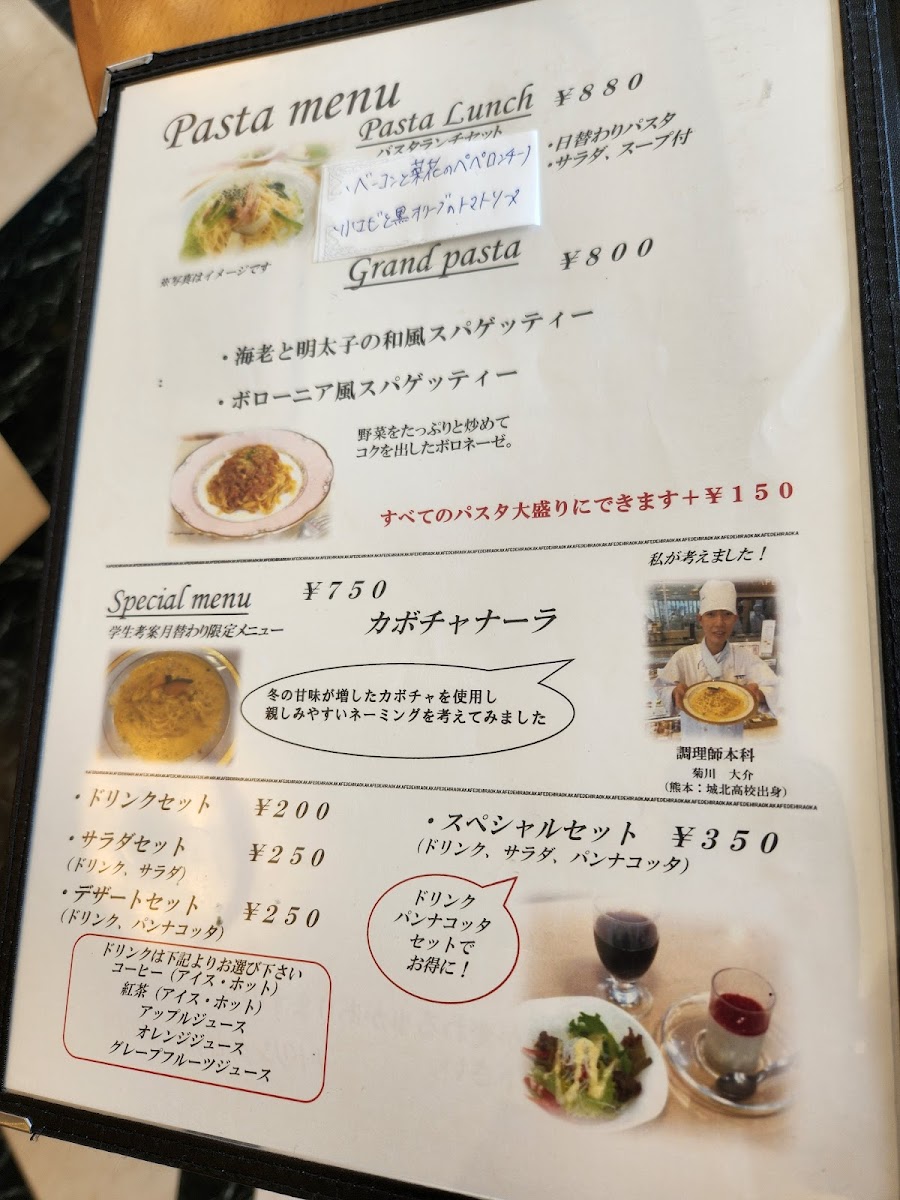 Pasta menu
Pasta Lunch ¥880
パスタランチセット
・日替わりパスタ
・サラダ、スープ付
・ベーコンと菜花のペペロンチーノ
・小エビと黒オリーブのトマトソース
※写真はイメージです
Grand pasta ¥800
・海老と明太子の和風スパゲッティー
・ボローニア風スパゲッティー
野菜をたっぷりと炒めて
コクを出したボロネーゼ。
すべてのパスタ大盛りにできます+¥150
私が考えました！
Special menu ¥750
学生考案月替わり限定メニュー
カボチャナーラ
冬の甘味が増したカボチャを使用し
親しみやすいネーミングを考えてみました
調理師本科
菊川 大介
（熊本：城北高校出身）
・ドリンクセット ¥200
・サラダセット ¥250
（ドリンク、サラダ）
・デザートセット ¥250
（ドリンク、パンナコッタ）
・スペシャルセット ¥350
（ドリンク、サラダ、パンナコッタ）
ドリンク
パンナコッタ
セットで
お得に！
ドリンクは下記よりお選び下さい
コーヒー（アイス・ホット）
紅茶（アイス・ホット）
アップルジュース
オレンジジュース
グレープフルーツジュース